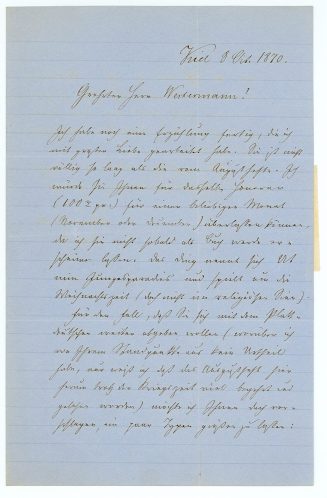 Kiel 8 Oct. 1870.
Geehrter Herr Westermann!
Ich habe noch eine Erzählung fertig, die ich
mit großer Liebe gearbeitet habe. Sie ist nicht
völlig so lang als die vom Augusthefte. Ich
würde sie Ihnen für dasselbe Honorar
(100 pr.) für einen beliebigen Monat
(November oder December) überlassen können,
da ich sie nicht sobald als Buch werde er-
scheinen lassen. Das Ding nennt sich Ut
min Jungsparadies und spielt um die
Weihnachtszeit (doch nicht im religiösen Sinn).
Für den Fall, daß Sie sich mit dem Platt-
deutschen weiter abgeben wollen (worüber ich
von Ihrem Standpunkte aus kein Urtheil
habe, nur weiß ich daß das Augustheft hier
herum trotz der Kriegszeit viel begehrt und
gelesen worden) möchte ich Ihnen doch vor-
schlagen, ein paar Typen gießen zu lassen: